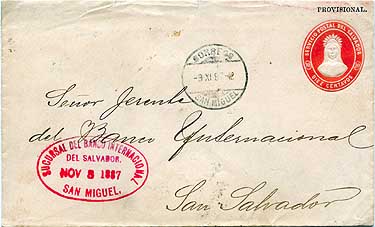 PROVISIONAL.
SERVICIO POSTAL DEL SALVADOR
DIEZ CENTAVOS
CORREOS
SAN MIGUEL
Señor Gerente
del Banco Internacional
San Salvador
SUCURSAL DEL BANCO INTERNACIONAL
DEL SALVADOR.
NOV 8 1887
SAN MIGUEL.